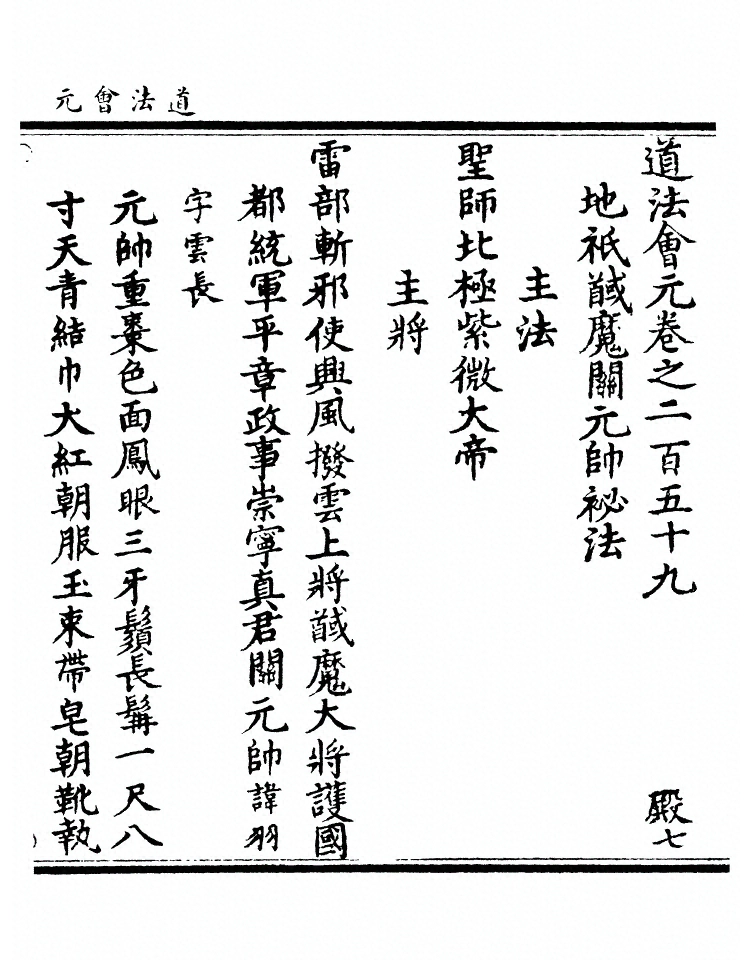 道法會元
道法會元卷之二百五十九　殿七
地祇馘魔關元帥祕法
主法
聖師北極紫微大帝
主將
雷部斬邪使興風撥雲上將馘魔大將護國
都統軍平章政事崇寧真君關元帥諱羽
字雲長
元帥重棗色面鳳眼三牙鬚長髯一尺八
寸天青結巾大紅朝服玉束帶皂朝靴執